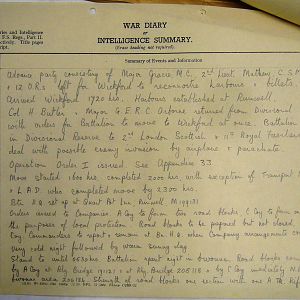 WAR DIARY
or
INTELLIGENCE SUMMARY.
(Erase heading not required).
Summary of Events and Information
Advance party consisting of Major Grace, M.C., 2nd Lieut. Mathew, C.S.M
+ 12 O.Rs left for Wickford to reconnoitre harbours + billets
Arrived Wickford 1720 hrs. Harbours established at Runwell,
Col H Butler, Major G.E.R.C. Osborne returned from Divisional
with orders for Battalion to move to Wickford at once. Battalion
in Divisional Reserve to 2nd London Scottish + 11th Royal
deal with possible enemy invasion by airplane + parachute.
Operation Order I issued. See Appendix 33
Move started 1600 hrs, completed 2000 hrs with exception of Transport
+ L.A.D. who completed move by 2300 hrs.
Btn H.Q. set up at Quart Pot Inn, Runwell M199131
Orders issued to Companies. A Coy to form two road blocks. C Coy to form
the purposes of local protection. Road blocks to be prepared but not closed
Commanders to report in person at Bn H.Q. when Company arrangements
Very cold night followed by warm sunny day.
Stand to until 0630 hrs. Battalion spent night in bivouac. Road blocks
by A Coy at Rly 191131 + at Rly Bridge 205118 + by C Coy immediately N.E.
bivouac area Strength of road blocks one section with one A.Tk Rifle